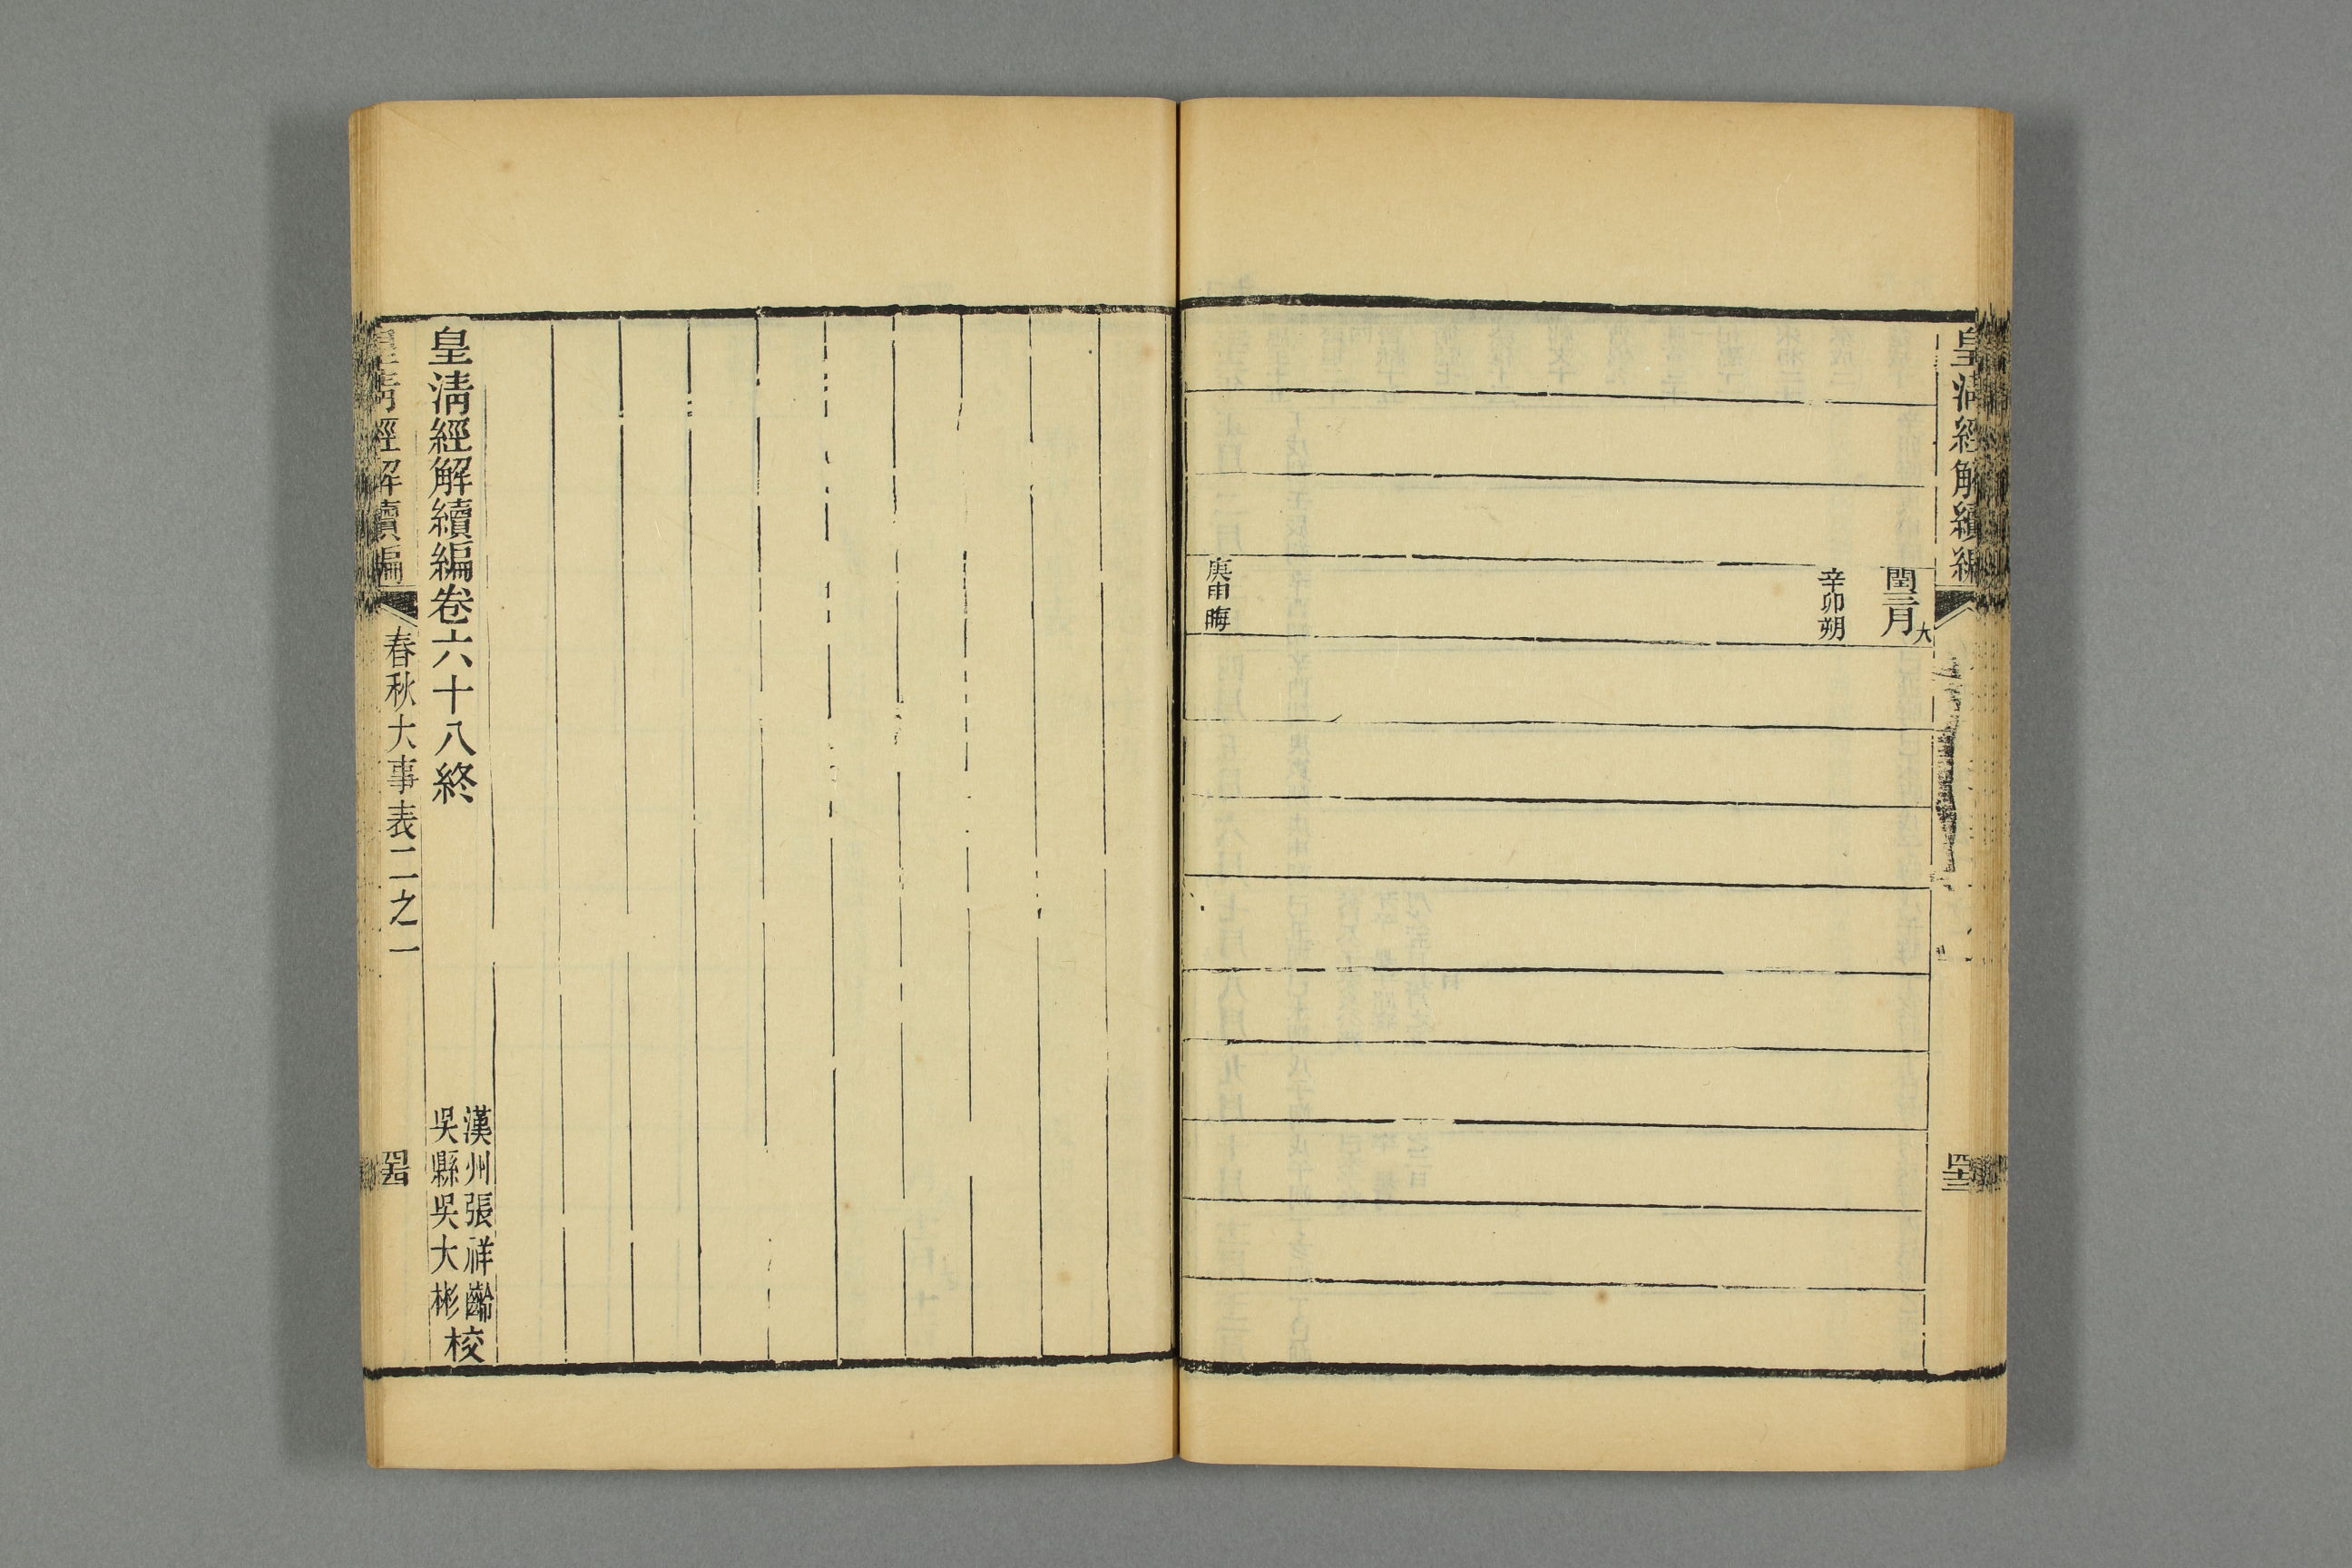 皇淸經解續編
四十三
閏三月大
辛卯朔
庚申晦
漢州張祥齡
吳縣吳大彬
校
皇淸經解續編卷六十八終
皇淸經解續編
春秋大事表二之一
四十四